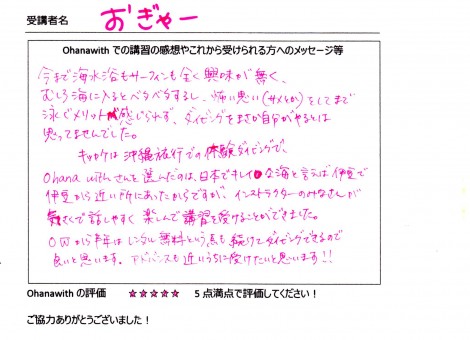 受講者名 おぎゃー
Ohanawith での講習の感想やこれから受けられる方へのメッセージ等
今まで海水浴もサーフィンも全く興味が無く、
むしろ海に入るとベタベタするし、怖い思い(サメとか)をしてまで
泳ぐメリットが感じられず、ダイビングをまさか自分がやるとは
思ってませんでした。
キッカケは沖縄旅行での体験ダイビングで、
Ohana withさんを選んだのは、日本でキレイな海と言えば伊豆で
伊豆から近い所にあったからですが、インストラクターのみなさんが
気さくで話しやすく楽しんで講習を受けることができました。
OWから半年はレンタル無料という点も続けてダイビングできるので
良いと思います。アドバンスも近いうちに受けたいと思います!!
Ohanawith の評価 ★★★★★ 5 点満点で評価してください！
ご協力ありがとうございました！